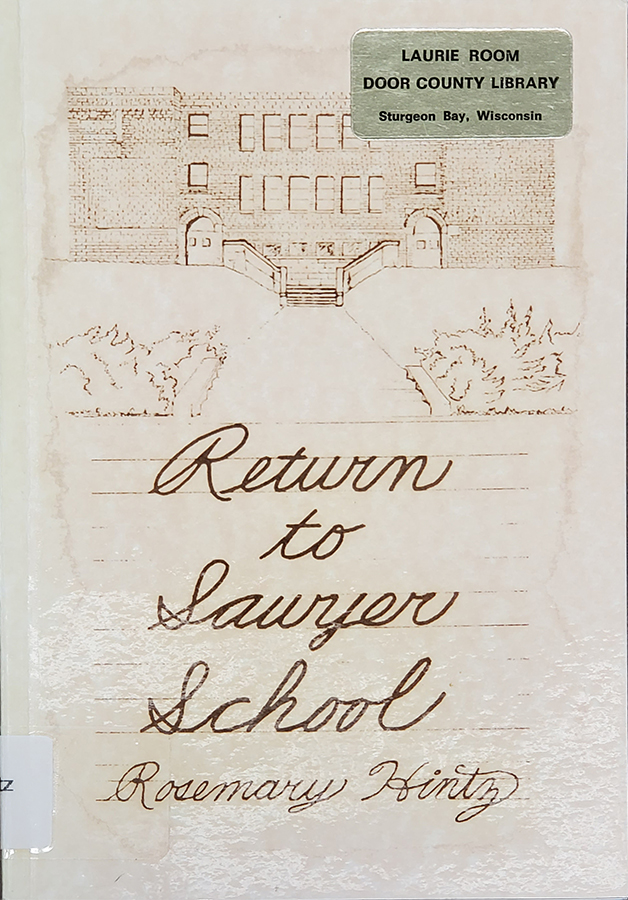 LAURIE ROOM
DOOR COUNTY LIBRARY
Sturgeon Bay, Wisconsin
Return
to
Sawyer
School
Rosemary Hintz
tz